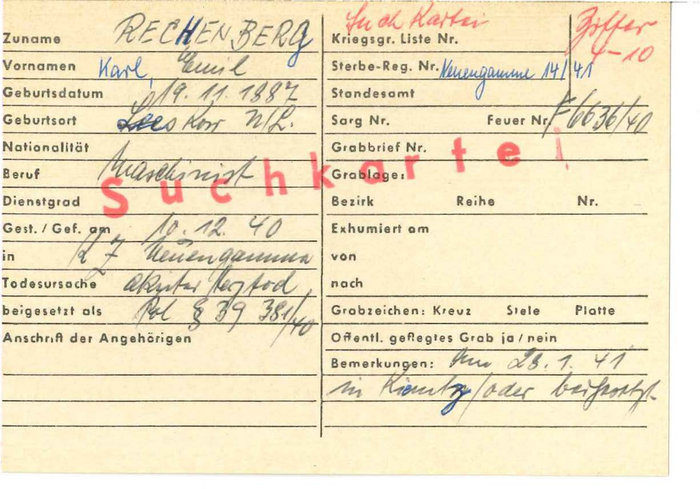 Zuname RECHENBERG
Vornamen Karl, Emil
Geburtsdatum 19.11.1887
Geburtsort Leeskow N/L.
Nationalität
Beruf Maschinist
Dienstgrad
Gest./Gef. am 10.12.40
in KZ Neuengamme
Todesursache akuter Herztod
beigesetzt als Pol § 39 381/40
Anschrift der Angehörigen
Suchkartei
Such Kartei
Kriegsgr. Liste Nr.
Sterbe-Reg. Nr. Neuengamme 14/41
Standesamt
Sarg Nr. Feuer Nr. F6636/40
Grabbrief Nr.
Grablage:
Bezirk Reihe Nr.
Exhumiert am
von
nach
Grabzeichen: Kreuz Stele Platte
Öffentl. gepflegtes Grab ja/nein
Bemerkungen: Am 28.1.41
in Kienitz/Oder beigesetzt.
Ziffer
-10